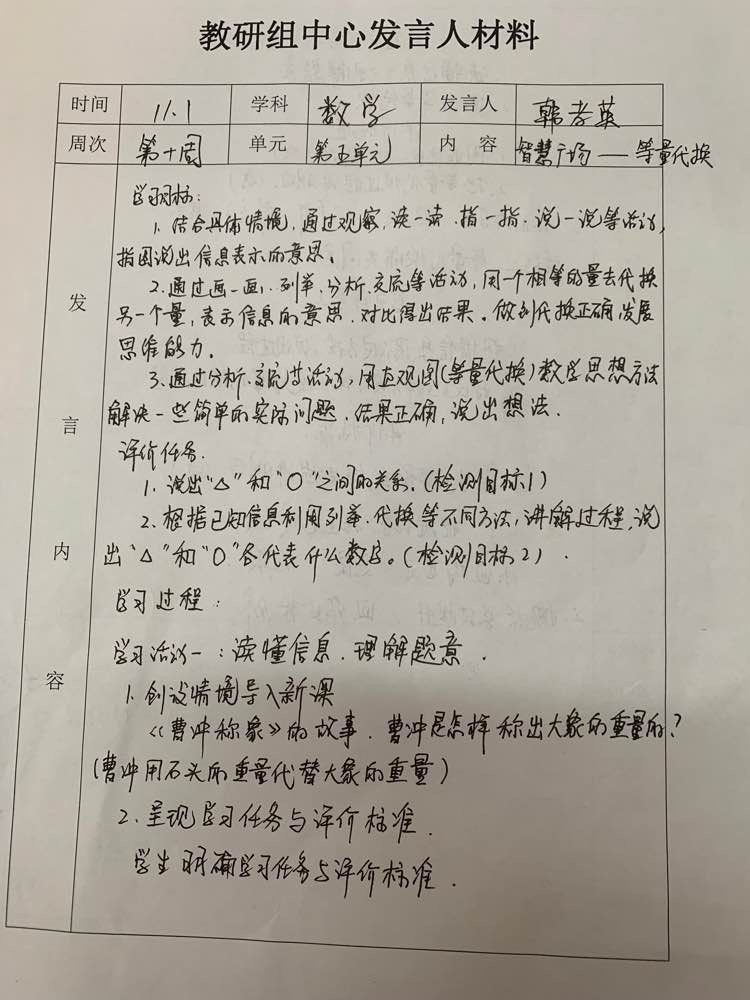 教研组中心发言人材料
时间 11.1 学科 数学 发言人 韩孝英
周次 第十周 单元 第五单元 内容 智慧广场——等量代换
发言内容
学习目标：
1. 结合具体情境，通过观察，读一读、指一指、说一说等活动，
指图说出信息表示的意思。
2. 通过画一画、列举、分析、交流等活动，用一个相等的量去代换
另一个量，表示信息的意思，对比得出结果。做到代换正确，发展
思维能力。
3. 通过分析、交流等活动，用直观图（等量代换）数学思想方法
解决一些简单的实际问题，结果正确，说出想法。
评价任务.
1. 说出“△”和“○”之间的关系.（检测目标1）
2. 根据已知信息利用列举、代换等不同方法，讲解过程，说
出“△”和“○”各代表什么数字。（检测目标2）.
学习过程：
学习活动一：读懂信息、理解题意.
1. 创设情境导入新课
《曹冲称象》的故事. 曹冲是怎样称出大象的重量的？
（曹冲用石头的重量代替大象的重量）
2. 呈现学习任务与评价标准.
学生明确学习任务与评价标准.